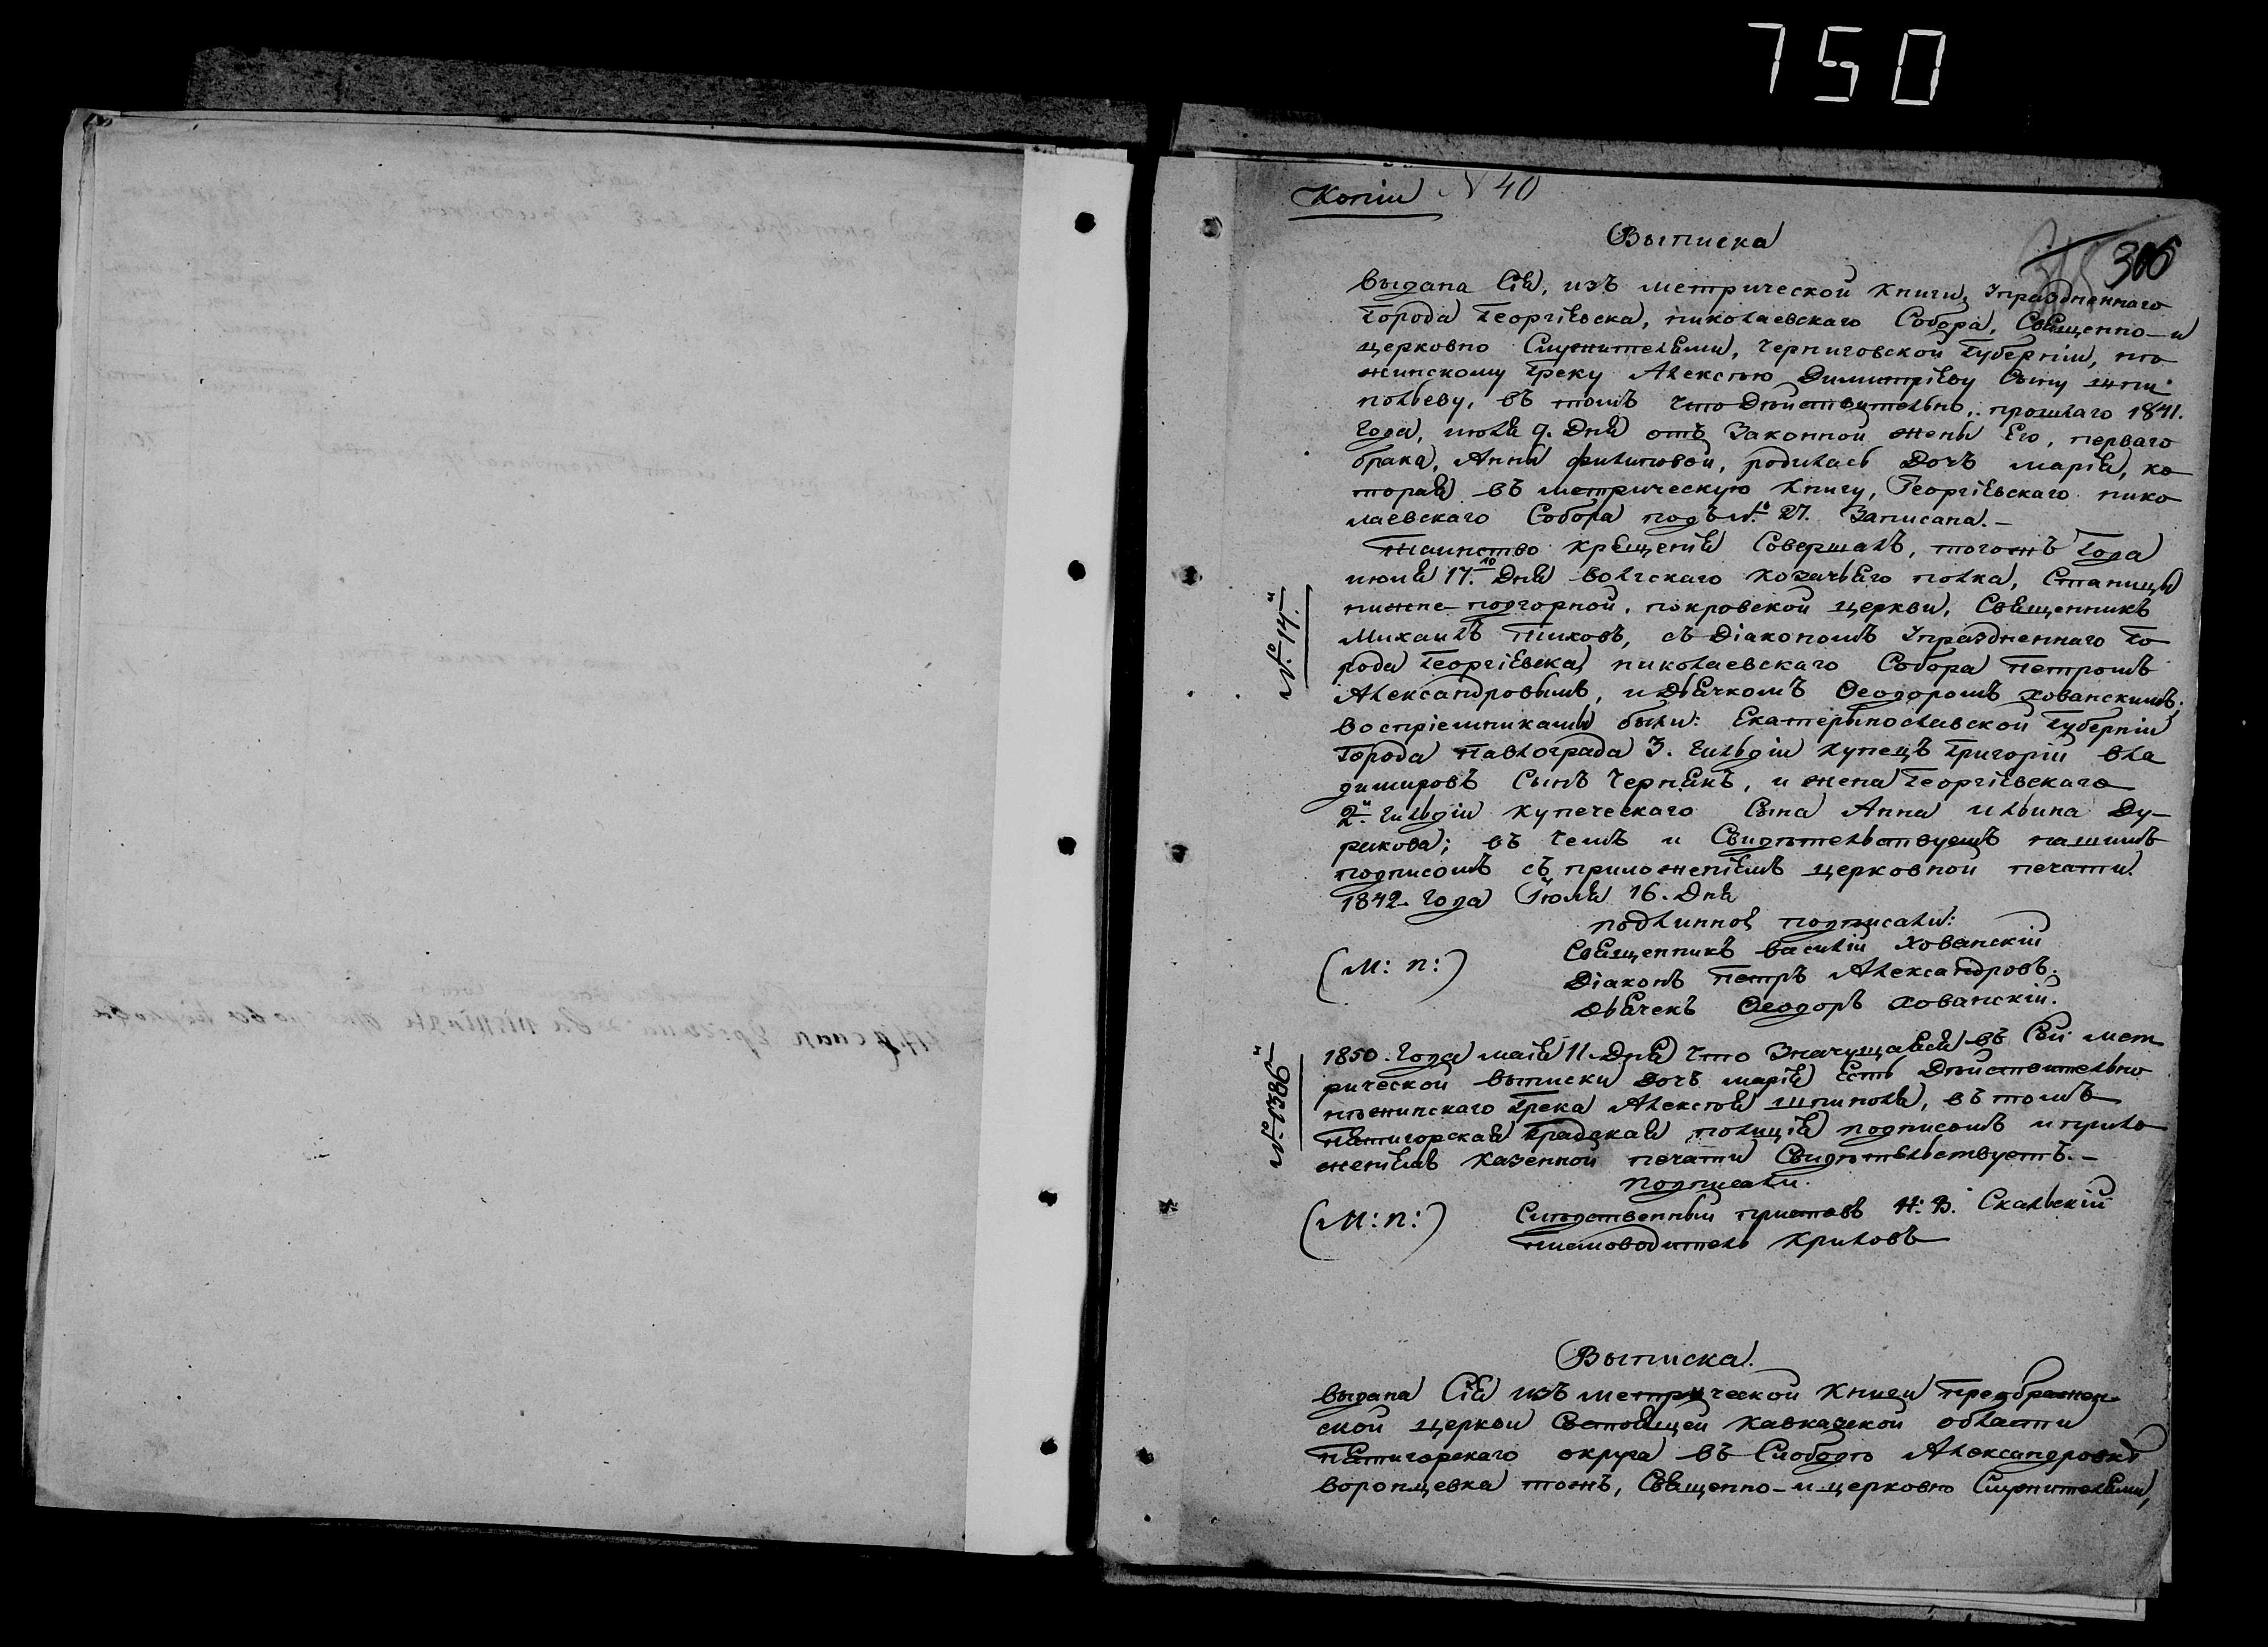 750
Копiи N 40
306
Выписка
выдана сiя, изъ метрической книги, Упраздненнаго
города Георгiевска, николаевскаго Собора, Священно-и
церковно Служителями, Черниговской губернiи, нѣ
жинскому греку Алексѣю Димитрiеву Сыну шпи
польеву, въ томъ что Дѣйствительно, прошлаго 1841.
года, июля 9. Дня отъ Законной жены Его, перваго
брака, Анны филиповой, родилась Дочъ марiя, ко
торая въ метрическую книгу, Георгiевскаго нико
лаевскаго Собора подъ №. 27. Записана.–
Таинство крещенiя Совершалъ, тогожъ года
июля 17.го Дня волгскаго козачьяго полка, Станицы
нижне-подгорной, покровской церкви, Священникъ
Михаилъ Тиховъ, съ Дiакономъ Упраздненнаго го
рода Георгiевска, николаевскаго Собора Петромъ
Александровымъ, и Дьячкомъ Ѳеодоромъ хованскимъ;
воспрiемниками были: Екатеринославской губернiи
города Павлограда 3. гильдiи купецъ григорiй вла
димировъ Сынъ Чернякъ, и жена Георгiевскаго
2й. гильдiи купеческаго Сына Анна ильина Ду-
рикова; въ чемъ и Свидѣтельствуемъ нашимъ
подписомъ съ приложенiемъ церковной печати.
1842. года Iюля 16. Дня
подлинное подписали:
(М: п:)
Священникъ василiй Хованскiй
Дiаконъ Петръ Александровъ.
Дьячекъ Ѳеодоръ хованскiй.
№. 14й.
1850. года маiя 11. Дня что Значущаяся въ Сей мет
рической выписки Дочъ марiя Есть Дѣйствительно
нѣжинскаго грека Алексѣя шпиполя, въ томъ
Пятигорская градская полицiя подписомъ и прило
женiемъ казенной печати Свидѣтельствуетъ.–
Подписали.
(М: п:)
Слѣдственный приставъ Н: В. Скальскiй
писмоводитель Криловъ
№. 1386й
Выписка.
выдана Сiя изъ метрической книги преображен
ской церкви Состоящей кавказской области
пятигорскаго округа въ Слободѣ Александровкѣ
воронцевка тожъ, Священно-и-церковно Служителями,